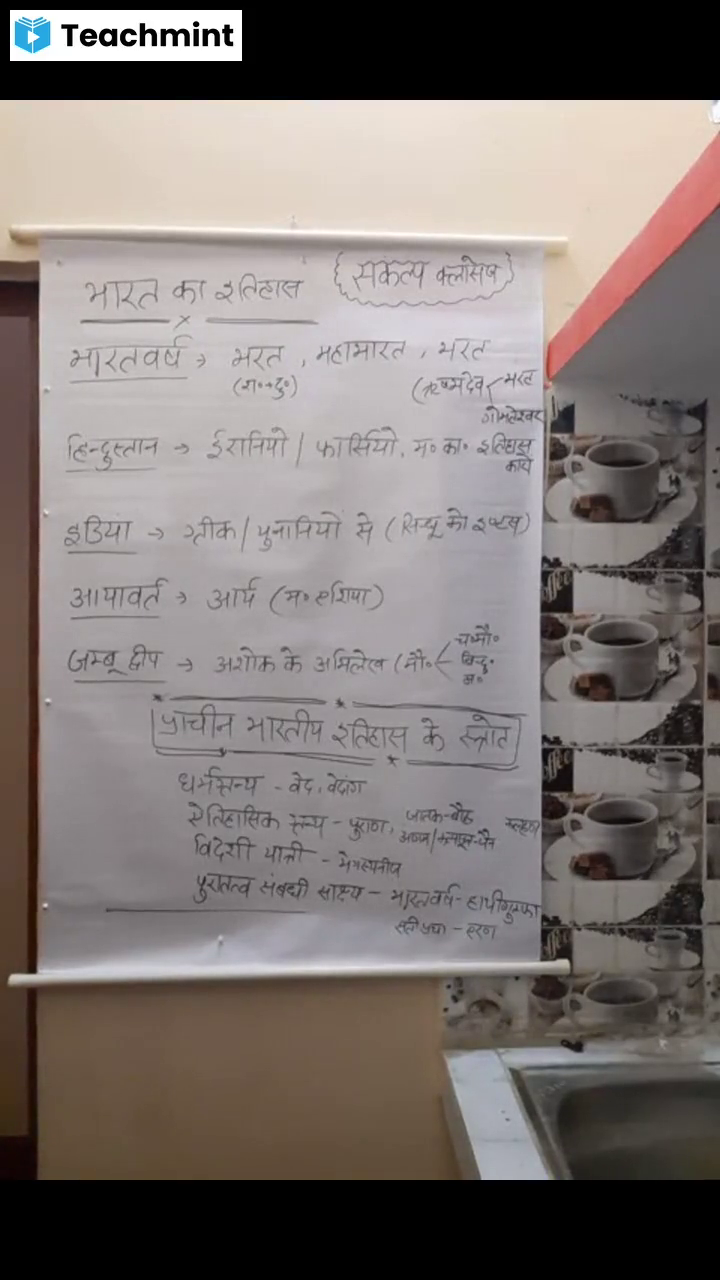 Teachmint
भारत का इतिहास {संकल्प क्लासेज}
भारतवर्ष → भरत, महाभारत, भरत
(श०+दु०) (ऋषभदेव < भरत
गोमतेश्वर
हिन्दुस्तान → ईरानियो / फारसियो, म० का० इतिहास
कार्य
इंडिया → ग्रीक / युनानियों से (सिन्धू को इण्डस)
आर्यावर्त → आर्य (म० एशिया)
जम्बू द्वीप → अशोक के अभिलेख (मौ० < च०मौ०
बिन्दु०
अ०
प्राचीन भारतीय इतिहास के स्त्रोत
धर्मग्रन्थ - वेद, वेदांग
ऐतिहासिक ग्रन्थ - पुराण, जातक-बौद्ध
विदेशी यात्री - मेगस्थनीज
पुरातत्व संबधी साक्ष्य - भारतवर्ष - हाथीगुम्फा
सतीप्रथा - एरण